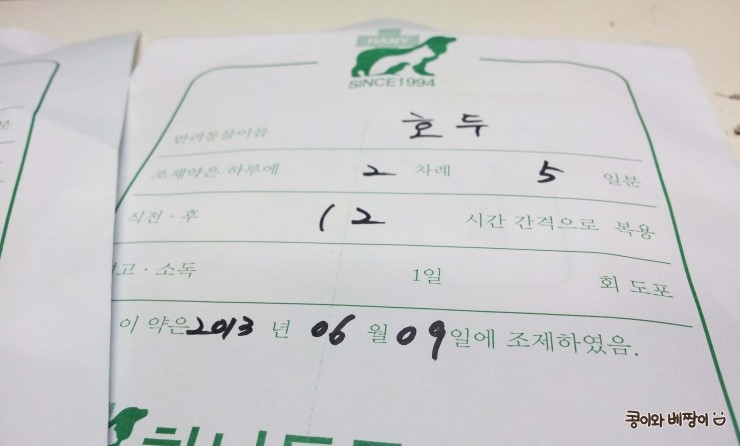 HANY
SINCE1994
반려동물이름 호두
조제약은 하루에 2 차례 5 일분
식전·후 12 시간 간격으로 복용
고·소독 1일 회 도포
이 약은 2013 년 06 월 09 일에 조제하였음.
콩이와 삐짱이